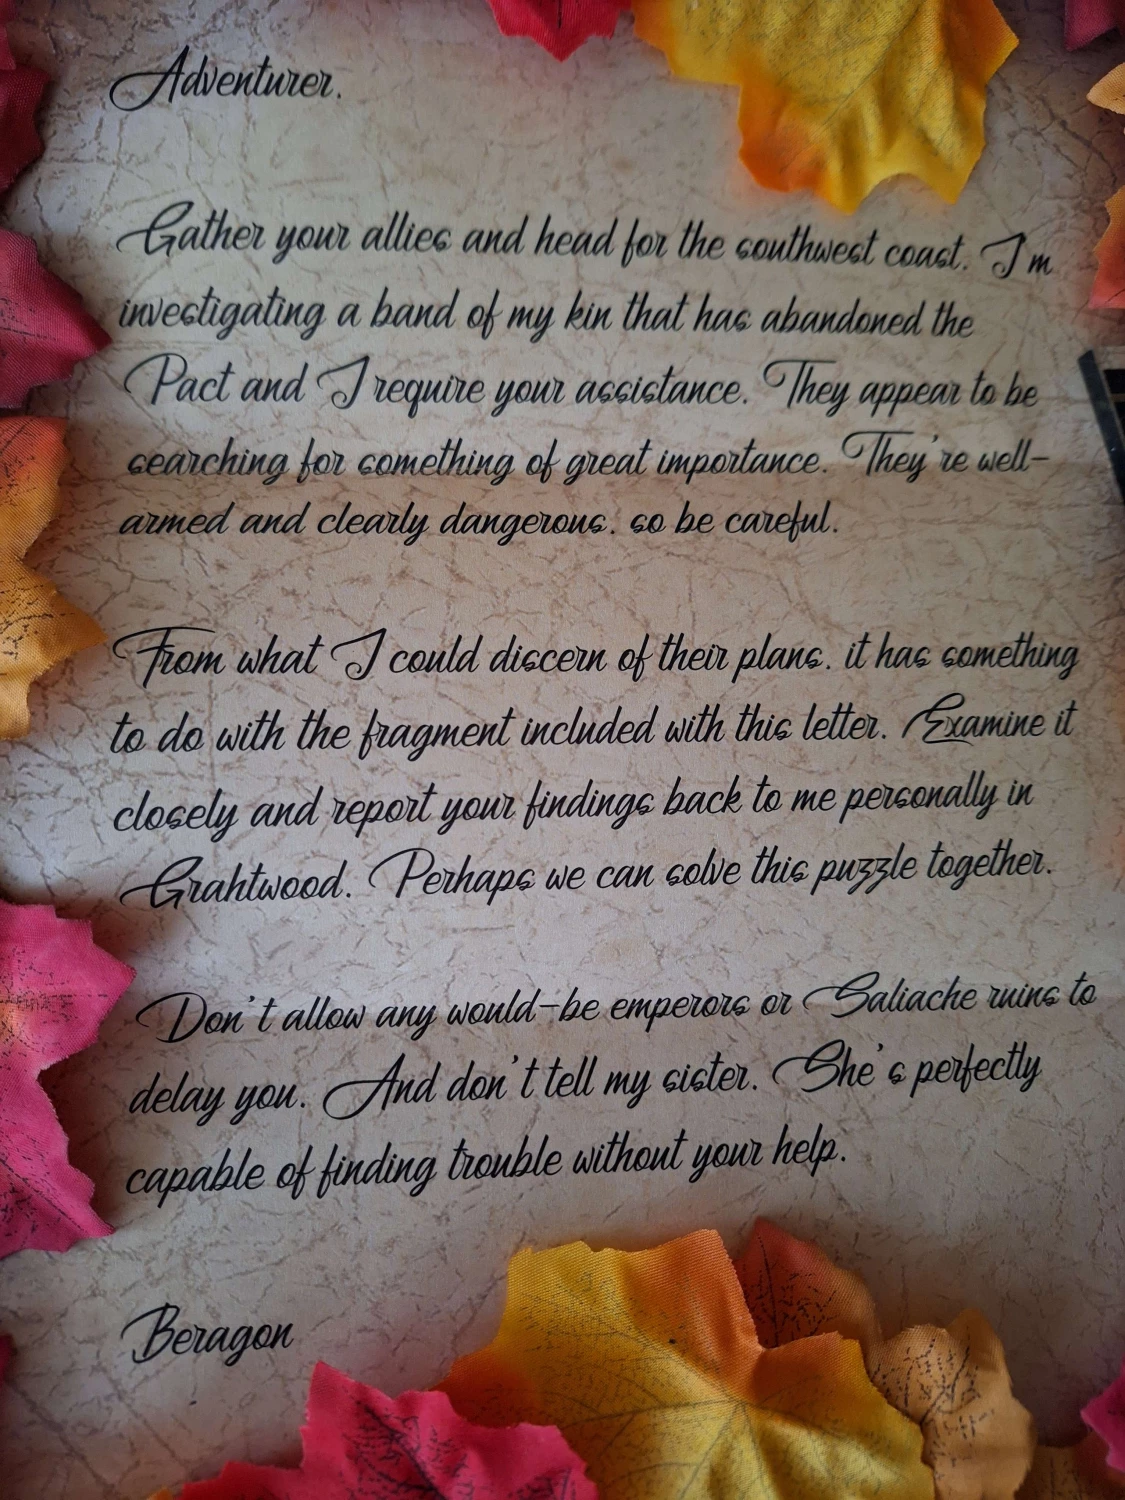 Adventurer.
Gather your allies and head for the southwest coast. I'm
investigating a band of my kin that has abandoned the
Pact and I require your assistance. They appear to be
searching for something of great importance. They're well-
armed and clearly dangerous. so be careful.
From what I could discern of their plans. it has something
to do with the fragment included with this letter. Examine it
closely and report your findings back to me personally in
Grahtwood. Perhaps we can solve this puzzle together.
Don't allow any would-be emperors or Saliache ruins to
delay you. And don't tell my sister. She's perfectly
capable of finding trouble without your help.
Beragon